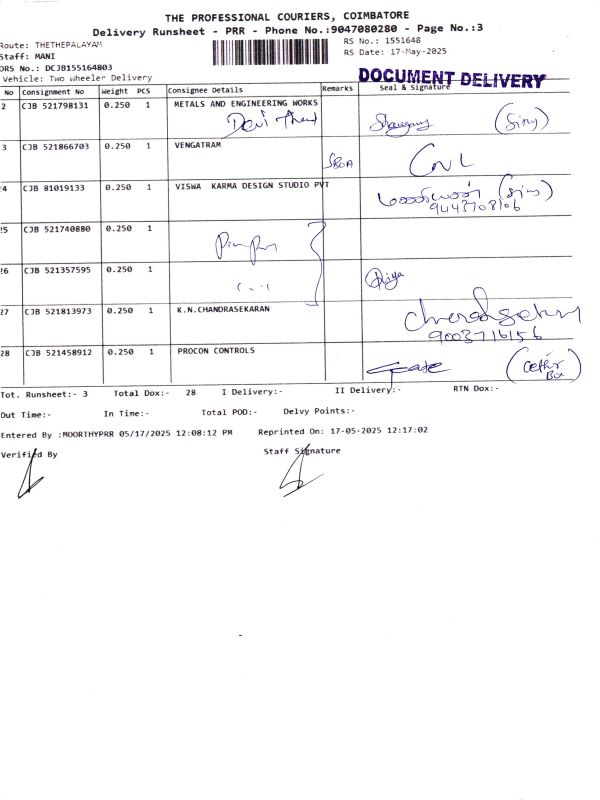 THE PROFESSIONAL COURIERS, COIMBATORE
Delivery Runsheet - PRR - Phone No.:9047080280 - Page No.:3
Route: THETHEPALAYAM RS No.: 1551648
Staff: MANI RS Date: 17-May-2025
DRS No.: DCJB155164803
Vehicle: Two Wheeler Delivery DOCUMENT DELIVERY
No Consignment No Weight PCS Consignee Details Remarks Seal & Signature
2 CJB 521798131 0.250 1 METALS AND ENGINEERING WORKS
3 CJB 521866703 0.250 1 VENGATRAM
24 CJB 81019133 0.250 1 VISWA KARMA DESIGN STUDIO PVT
9443708106
25 CJB 521740880 0.250 1
26 CJB 521357595 0.250 1 Priya
27 CJB 521813973 0.250 1 K.N.CHANDRASEKARAN
9003716156
28 CJB 521458912 0.250 1 PROCON CONTROLS
Tot. Runsheet:- 3 Total Dox:- 28 I Delivery:- II Delivery:- RTN Dox:-
Out Time:- In Time:- Total POD:- Delvy Points:-
Entered By :MOORTHYPRR 05/17/2025 12:08:12 PM Reprinted On: 17-05-2025 12:17:02
Verified By Staff Signature